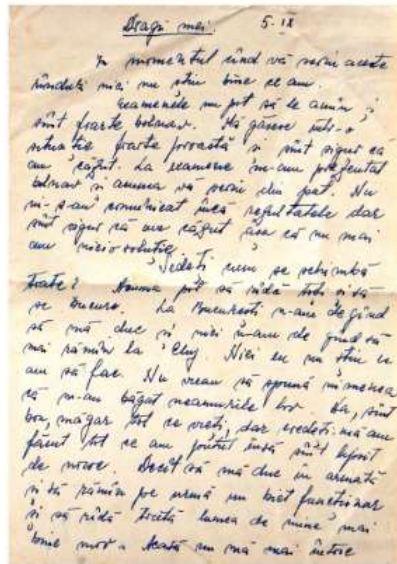 Dragii mei. 5. IX
In momentul cînd vă scriu aceste
rînduri nici nu știu bine ce am.
Examenele nu pot să le amîn și
sînt foarte bolnav. Mă găsesc într-o
situație foarte proastă și sînt sigur că
am căzut. La examene m-am prezentat
bolnav și acuma vă scriu din pat. Nu
ni s-au comunicat încă rezultatele dar
sînt sigur că am căzut așa că nu mai
am nicio soluție.
Vedeți cum se schimbă
toate? Acuma pot să rîdă toți și să
se bucure. La București n-am de gînd
să mă duc și nici n-am de gînd să
mai rămîn la Cluj. Nici eu nu știu ce
am să fac. Nu vreau să spună lumea
că m-am băgat neamurile lor. Da, sînt
bou, măgar tot ce vreți, dar credeți-mă am
făcut tot ce am putut însă sînt lipsit
de noroc. Decît să mă duc în armată
și să rămîn pe urmă un biet funcționar
și să rîdă toată lumea de mine mai
bine mor. Acasă nu mă mai întorc